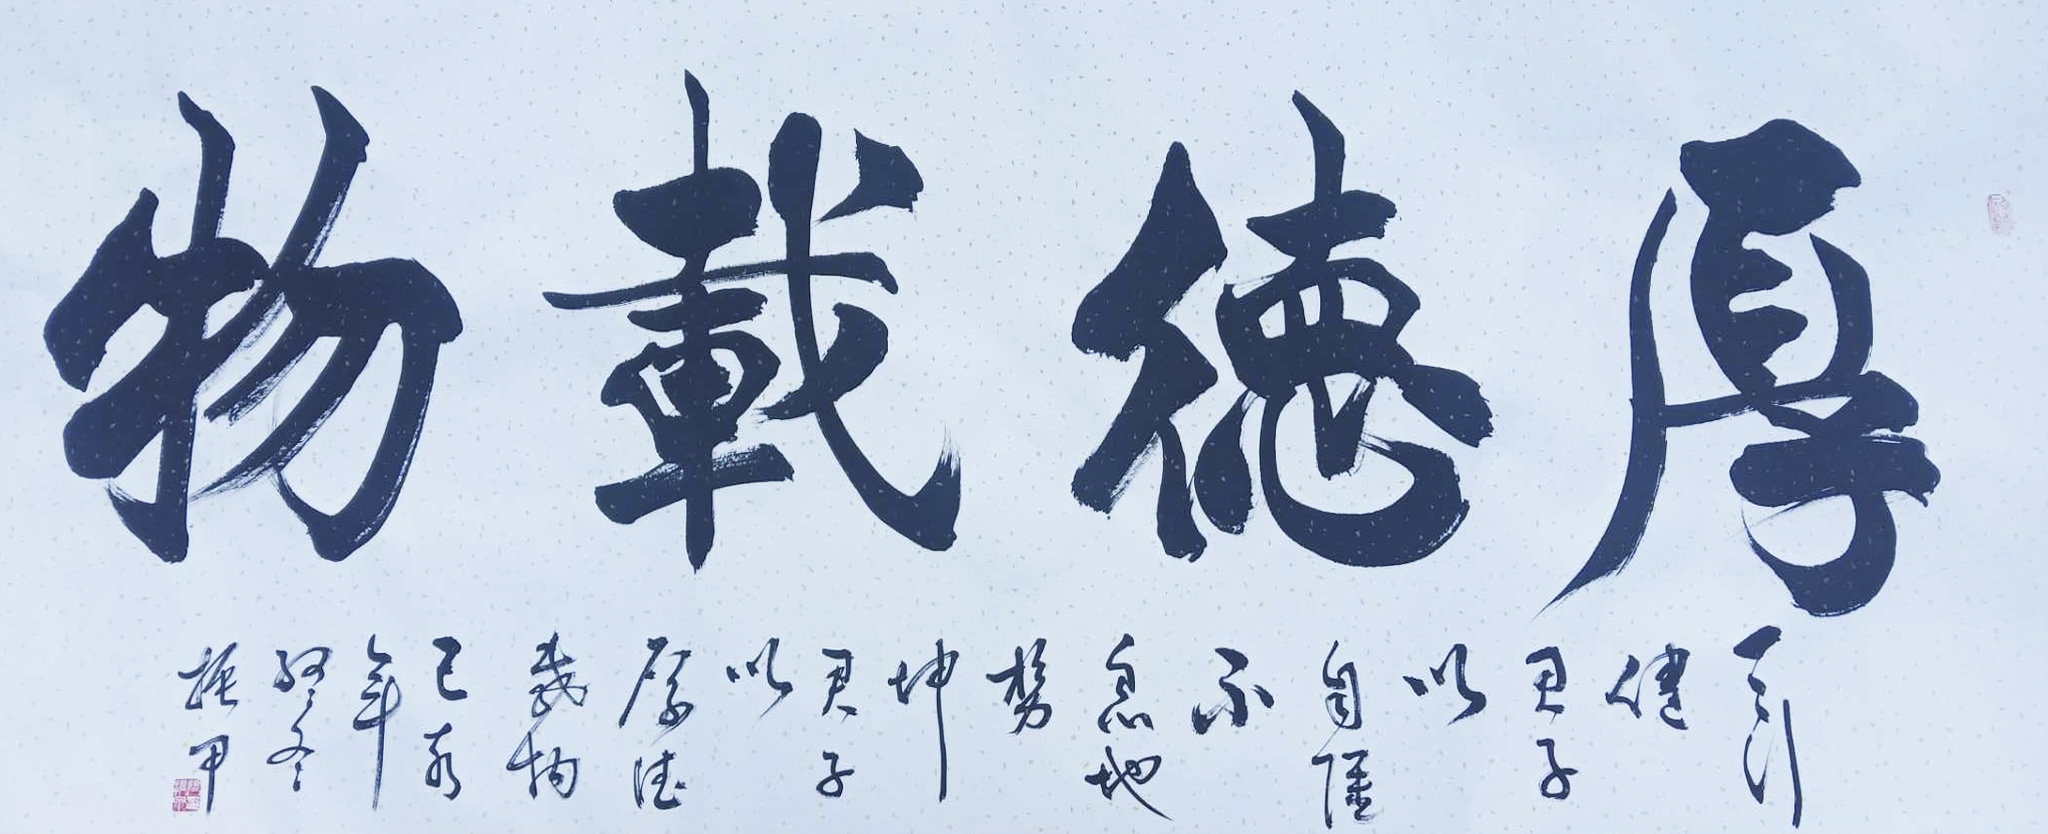 厚德載物
天行健君子以自强不息地勢坤君子以厚德載物己亥年冬振甲